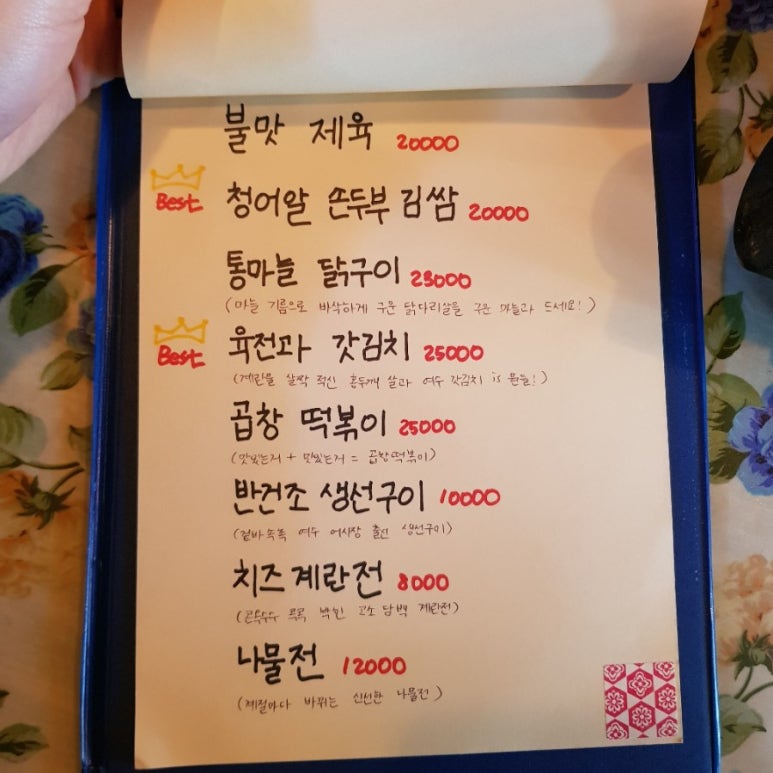 불맛 제육 20000
Best 청어알 손두부 김쌈 20000
통마늘 닭구이 23000
(마늘 기름으로 바삭하게 구운 닭다리살을 구운 마늘과 드세요!)
Best 육전과 갓김치 25000
(계란물 살짝 적신 홍두깨 살과 여수 갓김치 is 뭔들!)
곱창 떡볶이 25000
(맛있는거 + 맛있는거 = 곱창떡볶이)
반건조 생선구이 10000
(겉바속촉 여수 어시장 출신 생선구이)
치즈 계란전 8000
(콘옥수수 콕콕 박힌 고소 담백 계란전)
나물전 12000
(계절마다 바뀌는 신선한 나물전)